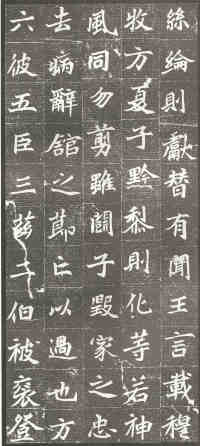 絲綸則獻替有聞王言載穆
牧方夏子黔黎則化等若神
風同勿翦雖鬬子毀家之忠
去病辭舘之節亡以過也方
六彼五臣三伯被袞登